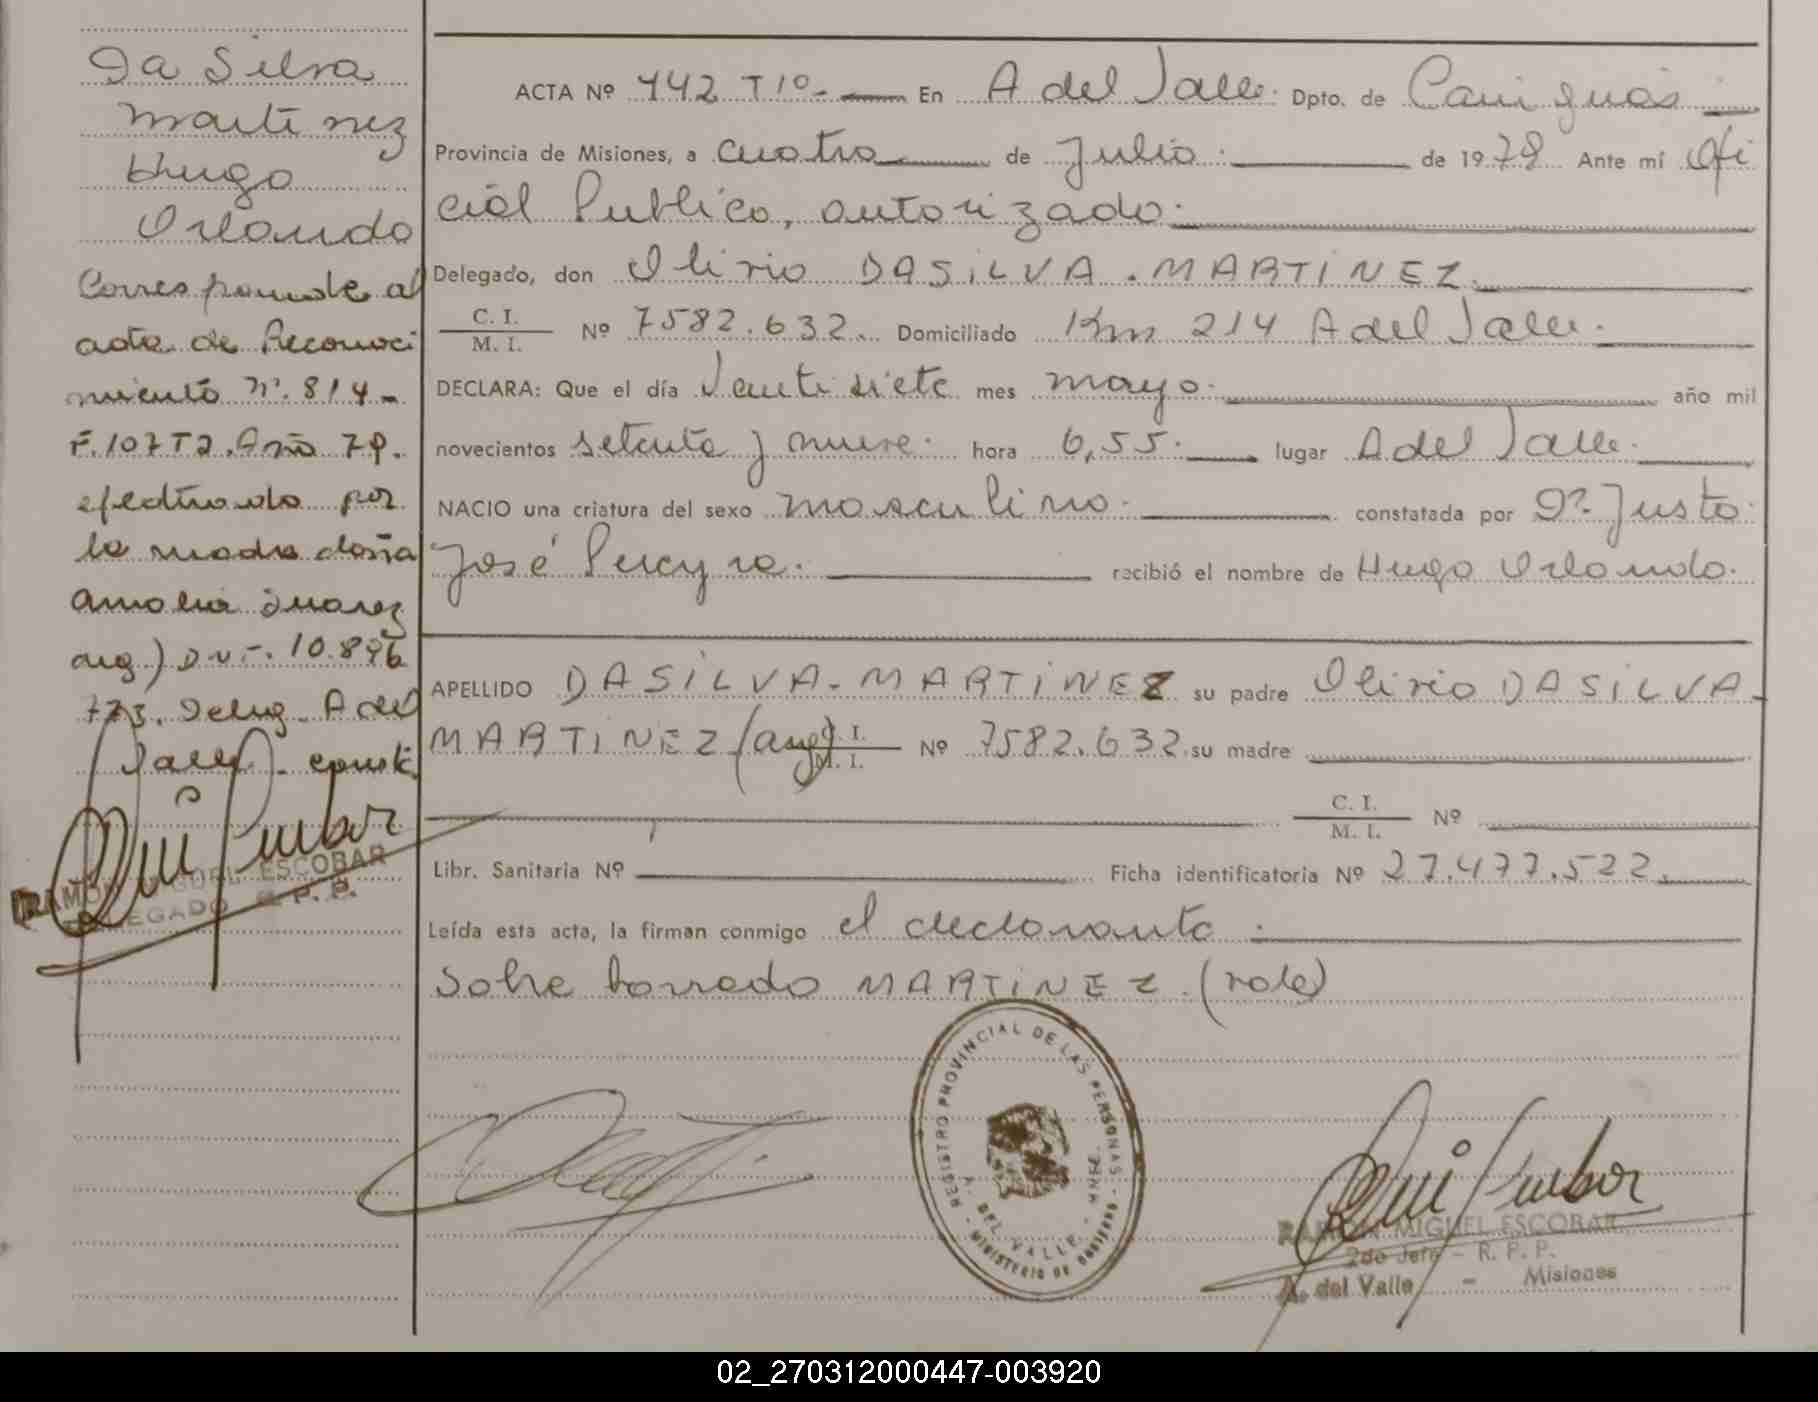 Da Silva
Martinez
Hugo
Orlando
Corresponde al
acta de Reconoci
miento Nº. 814-
F.107 T2. Año 79.
efectuado por
la madre doña
Amalia Juarez
arg.) D.N.I. 10.896
773. Deleg. A del
Valle.- const.
RAMON MIGUEL ESCOBAR
DELEGADO R. P. P.
ACTA Nº 442 T1º.- En A del Valle. Dpto. de Cainguás
Provincia de Misiones, a cuatro de Julio. de 1979 Ante mí Ofi
cial Publico, autorizado.
Delegado, don Olirio DASILVA. MARTINEZ.
C. I.
M. I.
Nº 7582.632. Domiciliado Km 214 A del Valle.
DECLARA: Que el día Veinti siete mes mayo. año mil
novecientos setenta y nueve. hora 6,55. lugar A del Valle.
NACIO una criatura del sexo masculino. constatada por Dº. Justo
José Pereyra. recibió el nombre de Hugo Orlando.
APELLIDO DASILVA-MARTINEZ su padre Olirio DASILVA-
MARTINEZ (arg) C. I.
M. I.
Nº 7582.632. su madre
C. I.
M. I.
Nº
Libr. Sanitaria Nº Ficha identificatoria Nº 27.477.522.
Leída esta acta, la firman conmigo el declarante.
Sobre borrado MARTINEZ. (vale)
REGISTRO PROVINCIAL DE LAS PERSONAS - MINISTERIO DE GOBIERNO
A. DEL VALLE
RAMON MIGUEL ESCOBAR
2do Jefe - R. P. P.
A. del Valle - Misiones
02_270312000447-003920